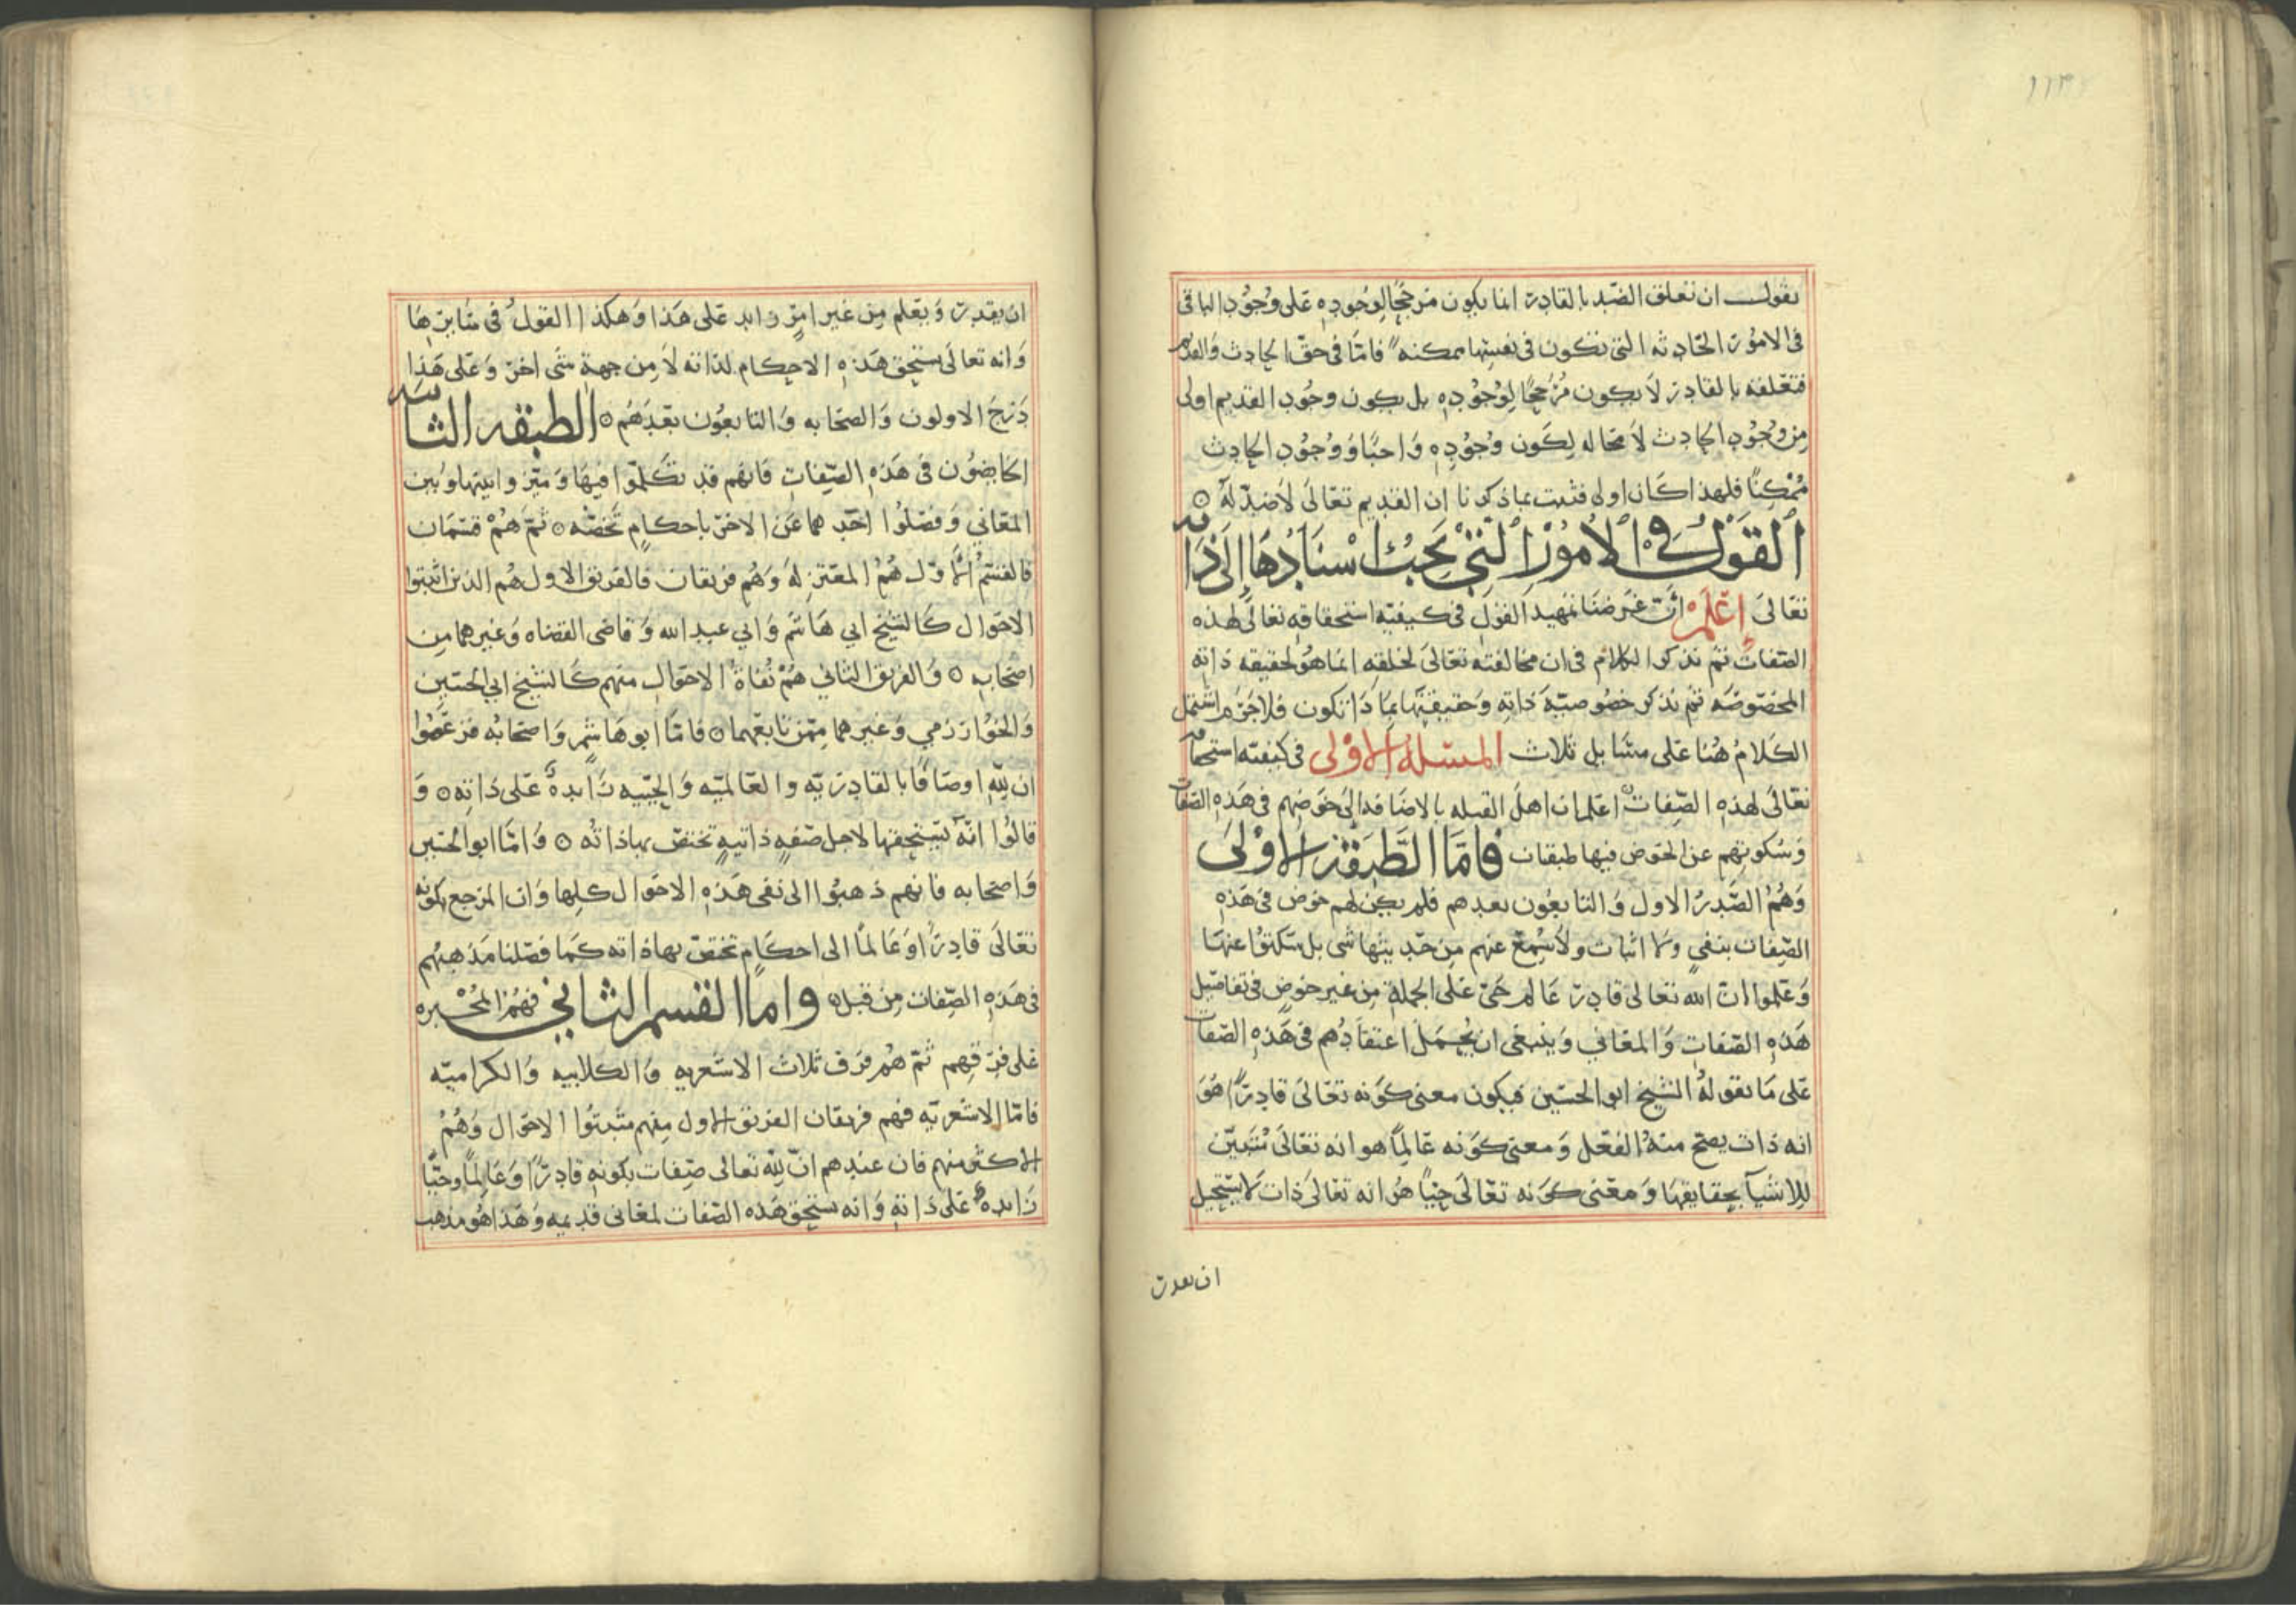 نقول ان تعلق الضد بالقادر انما يكون مرجحًا لوجوده على وجود الباقى
فى الامور الحادثه التى تكون فى نفسها ممكنه فامّا فى حقّ الحادث وَالقديم
فتعلقه بالقادر لَا يكون مُرَجحًا لِوُجُوْدِهِ بل يكون وجُود القديم اولى
مِن وُجُوْدِ الحادِث لَا محَاله لِكَون وُجُوْدِهِ وَاجبًا وَوُجُوْدِ الحادِث
مُمْكِنًا فلهذا كَان اولى فثبت بما ذكرنا ان القديم تعَالَى لَا ضِدّ لَهُ ۞
اَلقَوْلُ فِي الْأمُوْرِ الَّتِيْ يَجِبُ اسْنَادُهَا إلَى ذَاته
تعَالَى إعْلَم انّ غَرضنَا تمهيد القولِ فى كيفيّه استحقاقه تعالى لهذه
الصّفات ثم نذكر الكلام فى ان مخالفته تعَالىَ لخلقِهِ انما هُو لحقيقه ذاته
المخصُوصَه ثم نذكر خصُوصيّه ذاتِهِ وَحقيقيّتهَا بمَا ذَا تكون فلا جَرَم اشتمل
الكَلَامُ هُنا عَلى مسَايل ثلاث المسئلةُ الاوْلى فى كيفيّه استحقاقه
تعَالَى لهذهِ الصِّفات اعلم ان اهلَ القبله بالاضَافه الىَ خوَضهم فى هَذِهِ الصّفات
وَسُكوتهم عن الخوض فيها طبقات فَامَّا الطَّبَقَة الاوْلىَ
وَهُمُ الصَّدرُ الاول وَالتابعُون بعدهم فلم يكن لهم خوَض فى هَذِهِ
الصّفات بنفىٍ ولا اثبات ولَا يُسْمع عنهم مِن حَديثها شى بل سَكتوْا عنهَا
وَعَلموا انّ الله تعالى قادِر عَالم حَىّ عَلى الجملةِ مِن غير خوضٍ فى تفاصيل
هَذهِ الصّفاتِ وَالمعَاني وَينبغى ان يُحْمَلَ اعتقادُهم فى هَذِهِ الصّفات
عَلى مَا يقولهُ الشيخ ابو الحسَين فيكون معنى كوَنه تعَالىَ قادِرًا هُوَ
انه ذات يصحّ منهُ الفعَل وَمعنى كوَنه عَالِمًا هو انه تعَالىَ مُتَبيّن
لِلاشيآ بحقايقهَا وَمعَنى كوَنه تعَالَى حيًّا هُو انه تعَالىَ ذَات لا يسْتحيل
ان يقدر
ان يقدِر وَيعَلم مِن غير امرٍ زايد عَلى هَذا وَهكذا القولُ فى سَايرهَا
وَانه تعَالَى يستحق هَذهِ الاحكام لذاته لَا مِن جهةِ شى اخرَ وَعَلى هَذا
دَرَجَ الاولون وَالصحَابه وَالتابعُون بعَدَهُم ۞ الطبقه الثانيه
الخايضُون فى هَذِهِ الصّفاتِ فانهم قد تكَلموْا فيهَا وَميّزوا بينها وَبين
المعَاني وَفصَلوُا احَدهما عَن الاخرَ باحكامٍ تخُصّه ۞ ثمَّ هُمْ قسمَان
فالقسْمُ الاوّل هُمُ المعَتزِلهُ وَهُم فريقان فالفريق الاول هُم الذين اثبتوا
الاحَوال كَالشيخ ابي هَاشم وَابي عبد الله وَقاضى القضاه وَغيرهما مِن
اصحَابهِ ۞ وَالفريق الثاني هُمْ نُفاةُ الاحَوالِ منهم كَالشيخ ابي الحسَينِ
وَالخوُارَزمي وَغيرهما مِمّن تابعَهما ۞ فامَّا ابو هَاشمٍ وَاصحَابُه فزَعَموا
ان لِلّهِ اوصَافًا بالقادِريّه والعَالميّه وَالحيّيه زَايدهً عَلى ذَاتِهِ ۞ وَ
قالوُا انّهُ يَسْتحقهَا لاجل صفهٍ ذاتيهٍ تختصّ بها ذاتُه ۞ وَامّا ابو الحسَين
وَاصحابه فانهم ذهبُوا الى نفى هَذِهِ الاحَوال كلها وَان المرَجع بكوَنه
تعَالَى قادِرًا وَعَالمًا الى احكَامٍ تختصّ بها ذاته كَمَا فصّلنا مَذهبَهُم
فى هَذِهِ الصّفات مِن قبل ۞ وامّا القسم الثانى فهُمُ المُجْبره
عَلى فِرَقِهِم ثُمّ هُم فِرَق ثلاث الاشعَريه وَالكلابيه وَالكراميّه
فامّا الاشعَريّه فهم فريقان الفريق الاول مِنهم مثبتُوا الاحَوال وَهُمُ
الاكثر منهم فان عندهم انّ لِلّهِ تعَالى صِفات بكوَنهِ قادِرًا وَعَالمًا وحيًّا
زَايدهً عَلى ذَاتهِ وَانه يستحق هَذه الصّفات لمعَانى قديمه وَهَذا هُو مَذهب